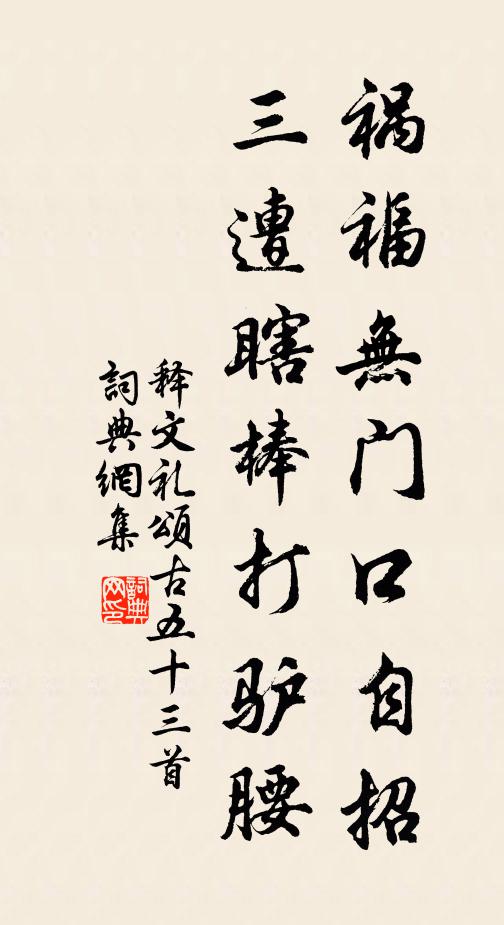 祸福無门口自招
三遭瞎棒打驴腰
释文礼頌古五十三首
詞典網集
詞典网印